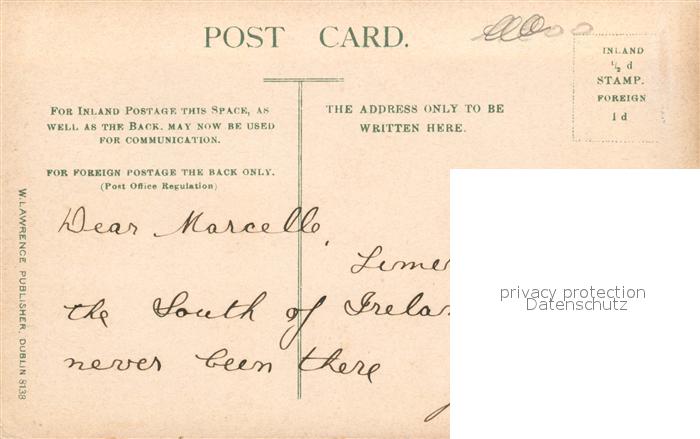 POST CARD.
INLAND
½ d
STAMP.
FOREIGN
1 d
FOR INLAND POSTAGE THIS SPACE, AS
WELL AS THE BACK, MAY NOW BE USED
FOR COMMUNICATION.
THE ADDRESS ONLY TO BE
WRITTEN HERE.
FOR FOREIGN POSTAGE THE BACK ONLY.
(Post Office Regulation)
W. LAWRENCE PUBLISHER, DUBLIN 8138
Dear Marcelle,
the South of
never been there
privacy protection
Datenschutz